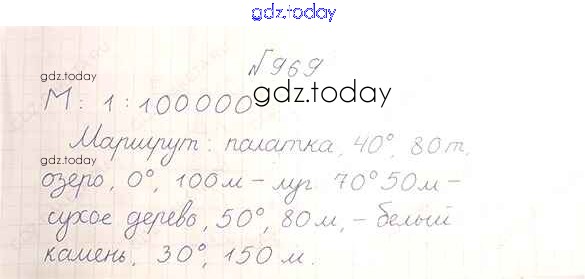 gdz.today
№969
gdz.today
М: 1 : 100000
gdz.today
Маршрут: палатка, 40°, 80 т,
озеро, 0°, 100 м – луг 70° 50 м –
сухое дерево, 50°, 80 м, – белый
камень, 30°, 150 м.